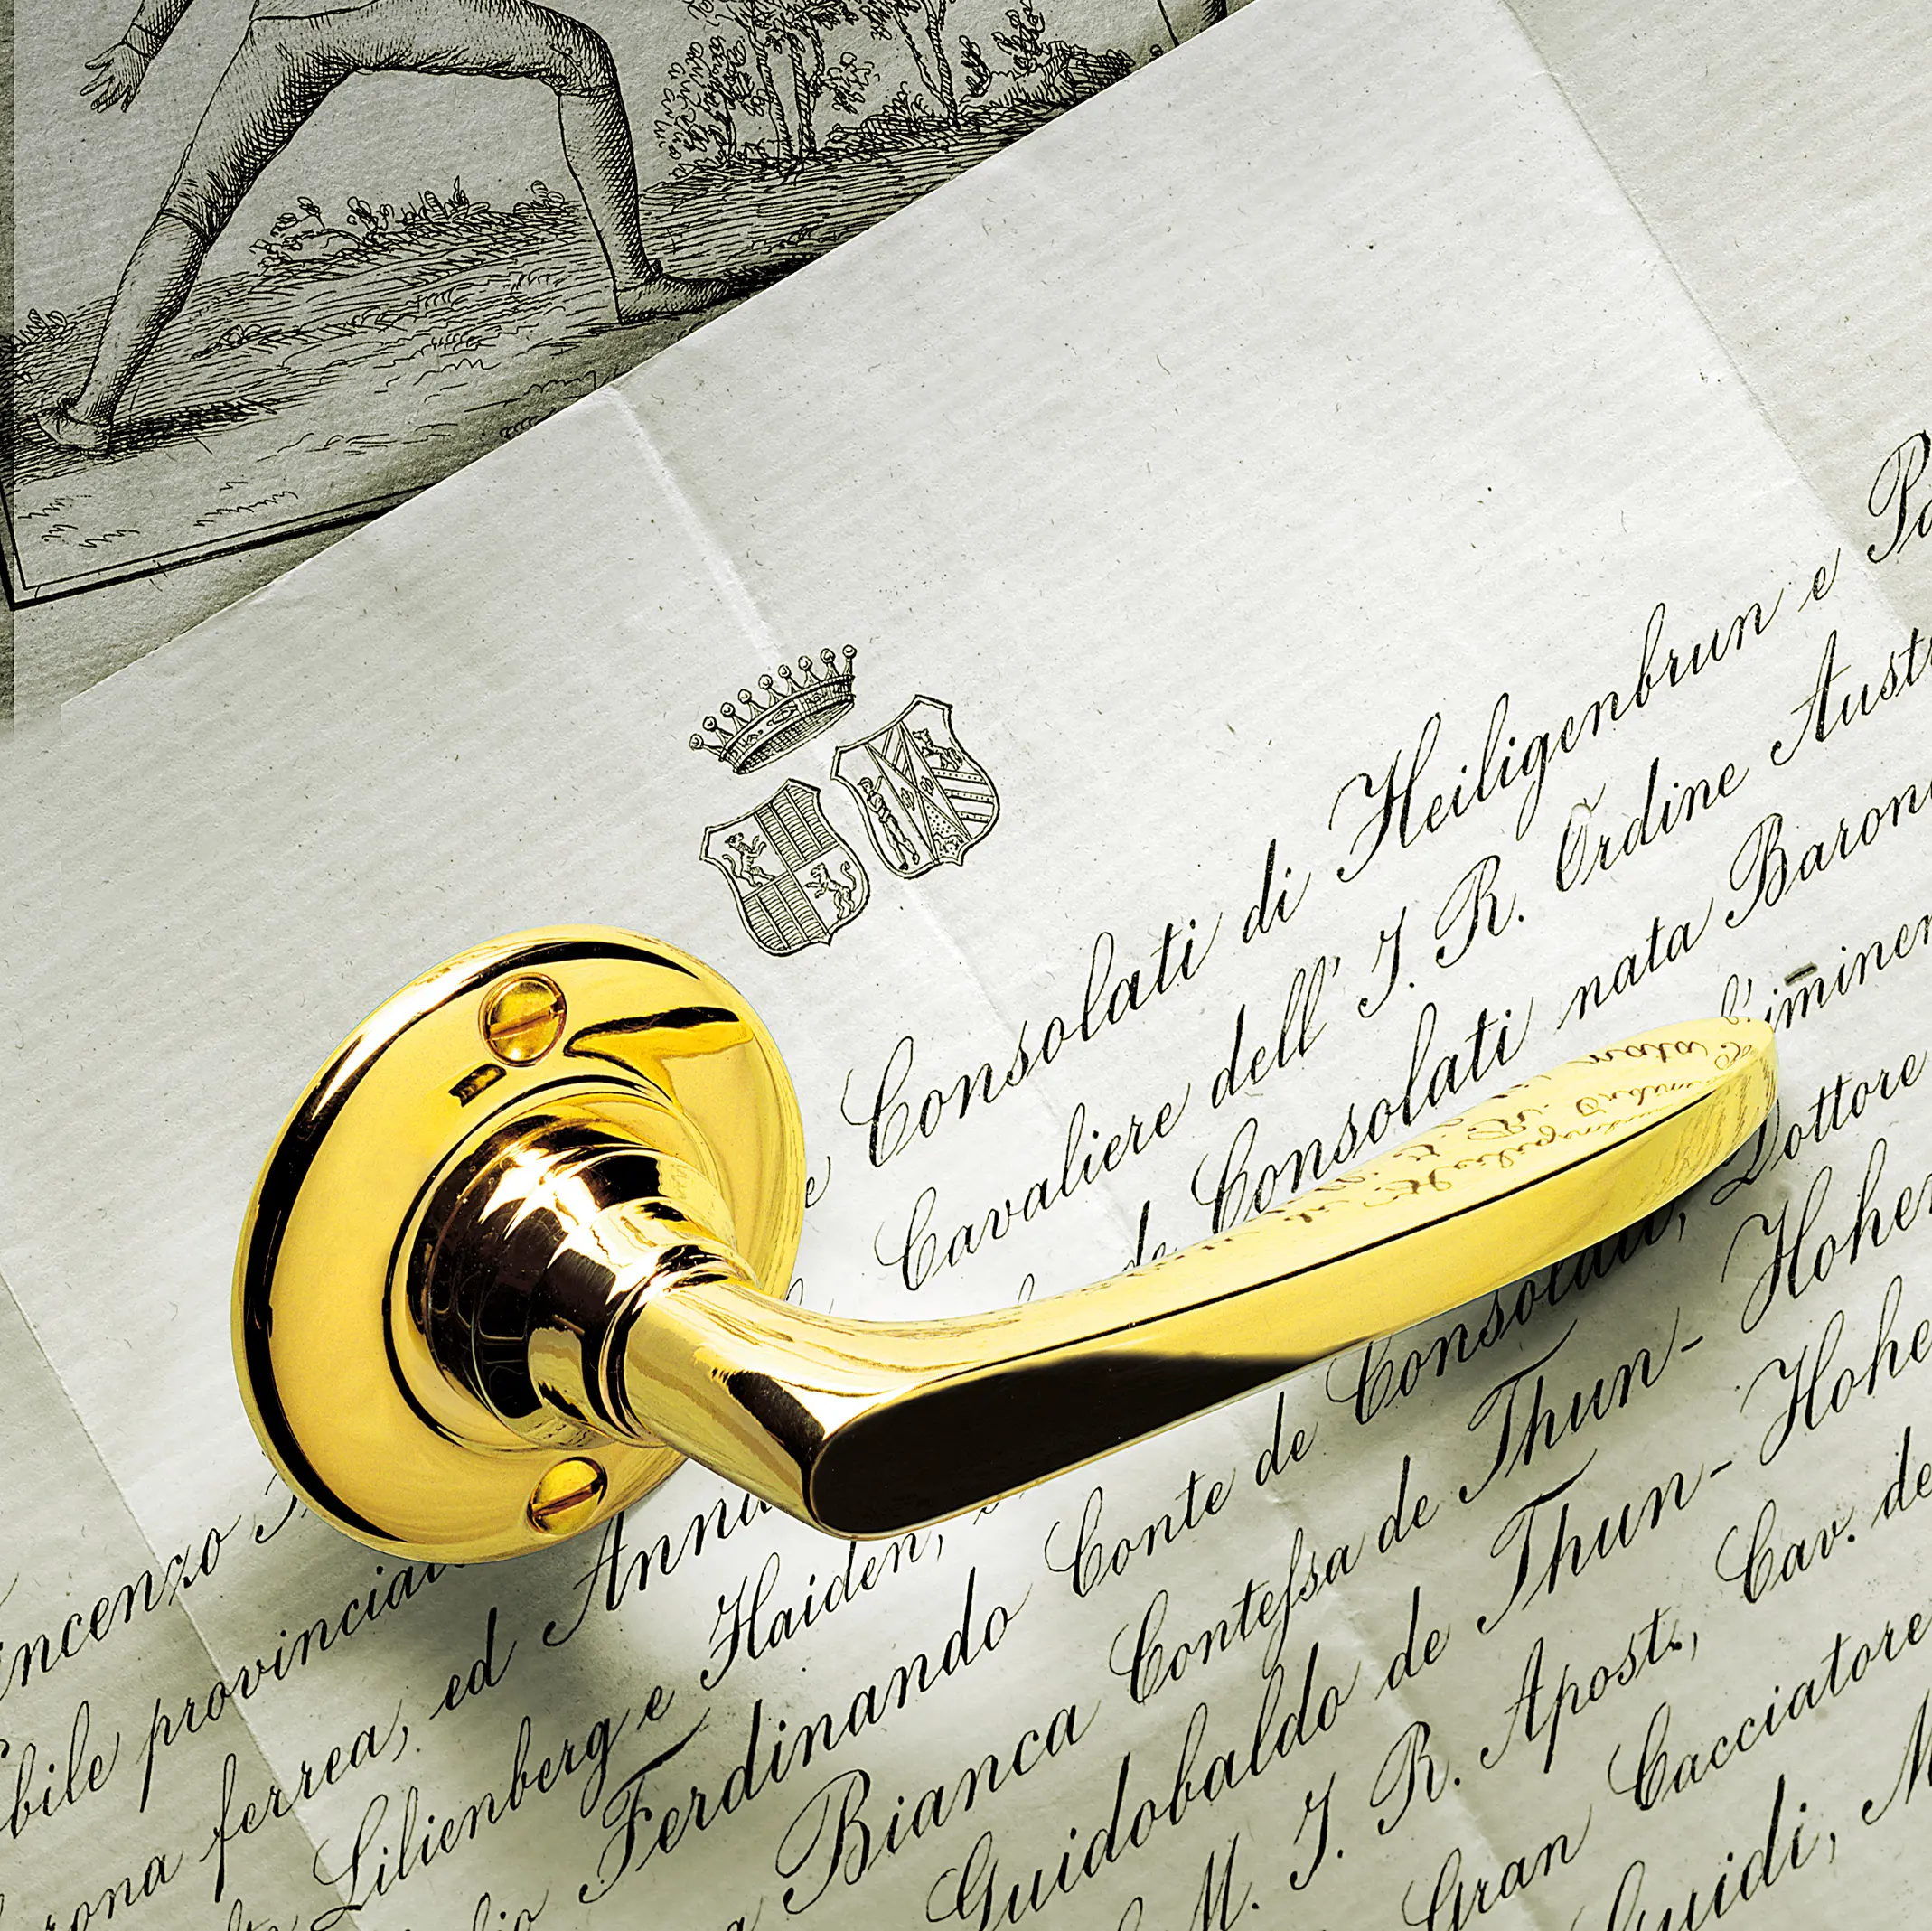 incenzo e Consolati di Heiligenbrun e
bile Cavaliere dell' I. R. Ordine Aust
rona ferrea, ed Anna de Consolati nata Baron
Lilienberg e Haiden, l'iminen
Ferdinando Conte de Consolati, Dottore
Bianca Conteſsa de Thun- Hohen
Guidobaldo de Thun- Hohe
M. I. R. Apost., Cav. de
Gran Cacciatore
Guidi, M